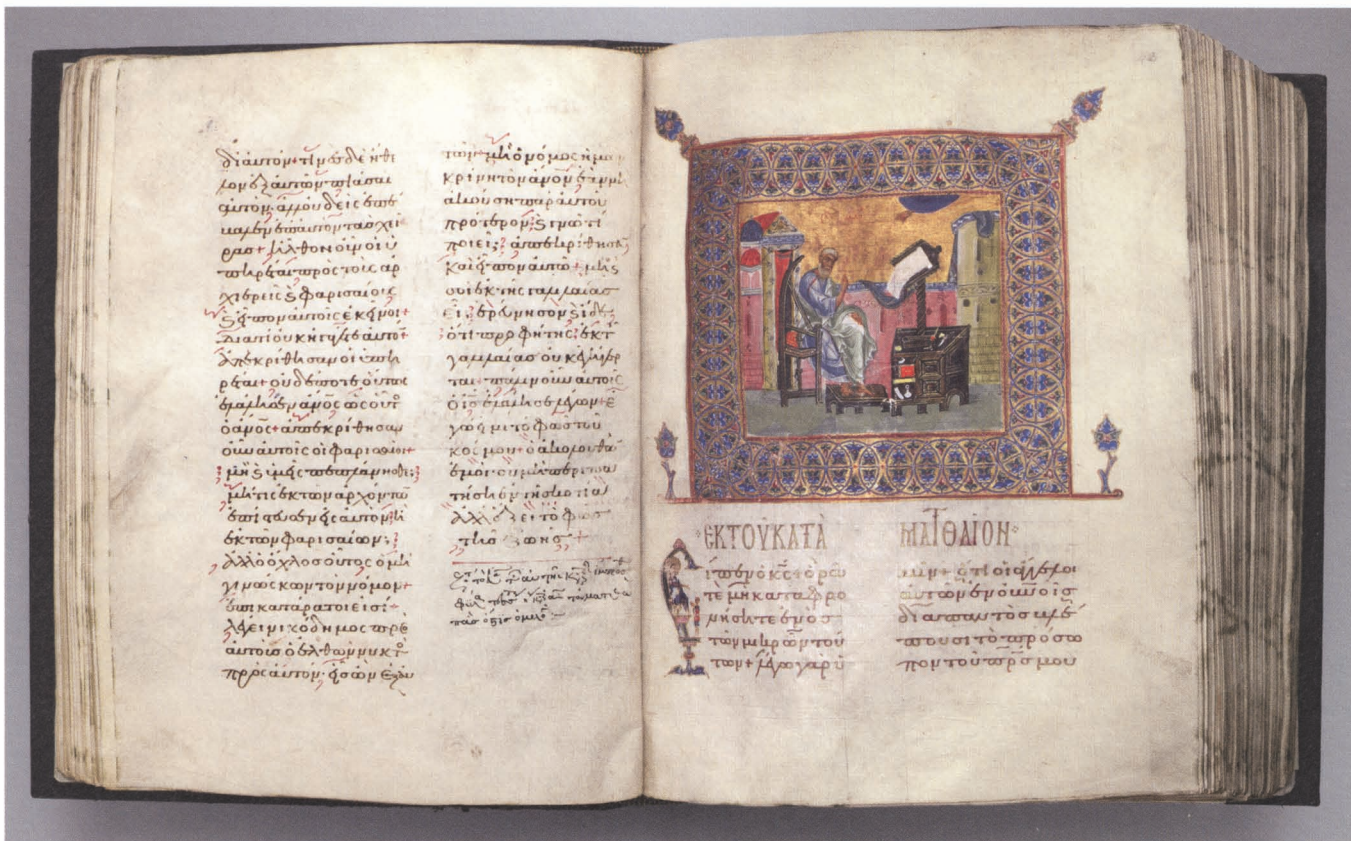 δι' αὐτόν + τινὲς δὲ ἤθε
λον ἐξ αὐτῶν πιάσαι
αὐτόν· ἀλλ' οὐδεὶς ἐπέ
βαλεν ἐπ' αὐτὸν τὰς χεῖ
ρας + ἦλθον οὖν οἱ ὑ
πηρέται πρὸς τοὺς ἀρ
χιερεῖς ϗ φαρισαίους
ϗ εἶπον αὐτοῖς ἐκεῖνοι +
διατί οὐκ ἠγάγετε αὐτόν +
ἀπεκρίθησαν οἱ ὑπη
ρέται + οὐδέποτε οὕτως
ἐλάλησεν ἄνος ὡς οὗτος
ὁ ἄνος + ἀπεκρίθησαν
οὖν αὐτοῖς οἱ φαρισαῖοι +
μὴ ϗ ὑμεῖς πεπλάνησθε;
μή τις ἐκ τῶν ἀρχόντων
ἐπίστευσεν εἰς αὐτόν; ἢ
ἐκ τῶν φαρισαίων;
ἀλλ' ὁ ὄχλος οὗτος ὁ μὴ
γινώσκων τὸν νόμον +
ἐπικατάρατοί εἰσι +
λέγει νικόδημος πρὸς
αὐτοὺς ὁ ἐλθὼν νυκτὸς
πρὸς αὐτόν· εἷς ὢν ἐξ αὐ
τῶν + μὴ ὁ νόμος ἡμῶν
κρίνει τὸν ἄνον ἐὰν μὴ
ἀκούσῃ παρ' αὐτοῦ
πρότερον; ϗ γνῶ τί
ποιεῖ; ἀπεκρίθησαν
καὶ εἶπον αὐτῷ + μὴ ϗ
σὺ ἐκ τῆς γαλιλαίας
εἶ; ἐρεύνησον ϗ ἴδε
ὅτι προφήτης ἐκ τῆς
γαλιλαίας οὐκ ἐγήγερ
ται + πάλιν οὖν αὐτοῖς
ὁ ις ἐλάλησε λέγων + ἐ
γώ εἰμι τὸ φῶς τοῦ
κόσμου + ὁ ἀκολουθῶν
ἐμοὶ οὐ μὴ περιπα
τήσῃ ἐν τῇ σκοτίᾳ
ἀλλ' ἕξει τὸ φῶς
τῆς ζωῆς +
ΕΚ ΤΟΥ ΚΑΤΑ ΜΑΤΘΑΙΟΝ
εἶπεν ὁ κς + ὁρᾶ
τε μὴ καταφρο
νήσητε ἑνὸς
τῶν μικρῶν τού
των + λέγω γὰρ ὑ
μῖν + ὅτι οἱ ἄγγελοι
αὐτῶν ἐν οὐνοις
διαπαντὸς βλέ
πουσι τὸ πρόσω
πον τοῦ πρς μου